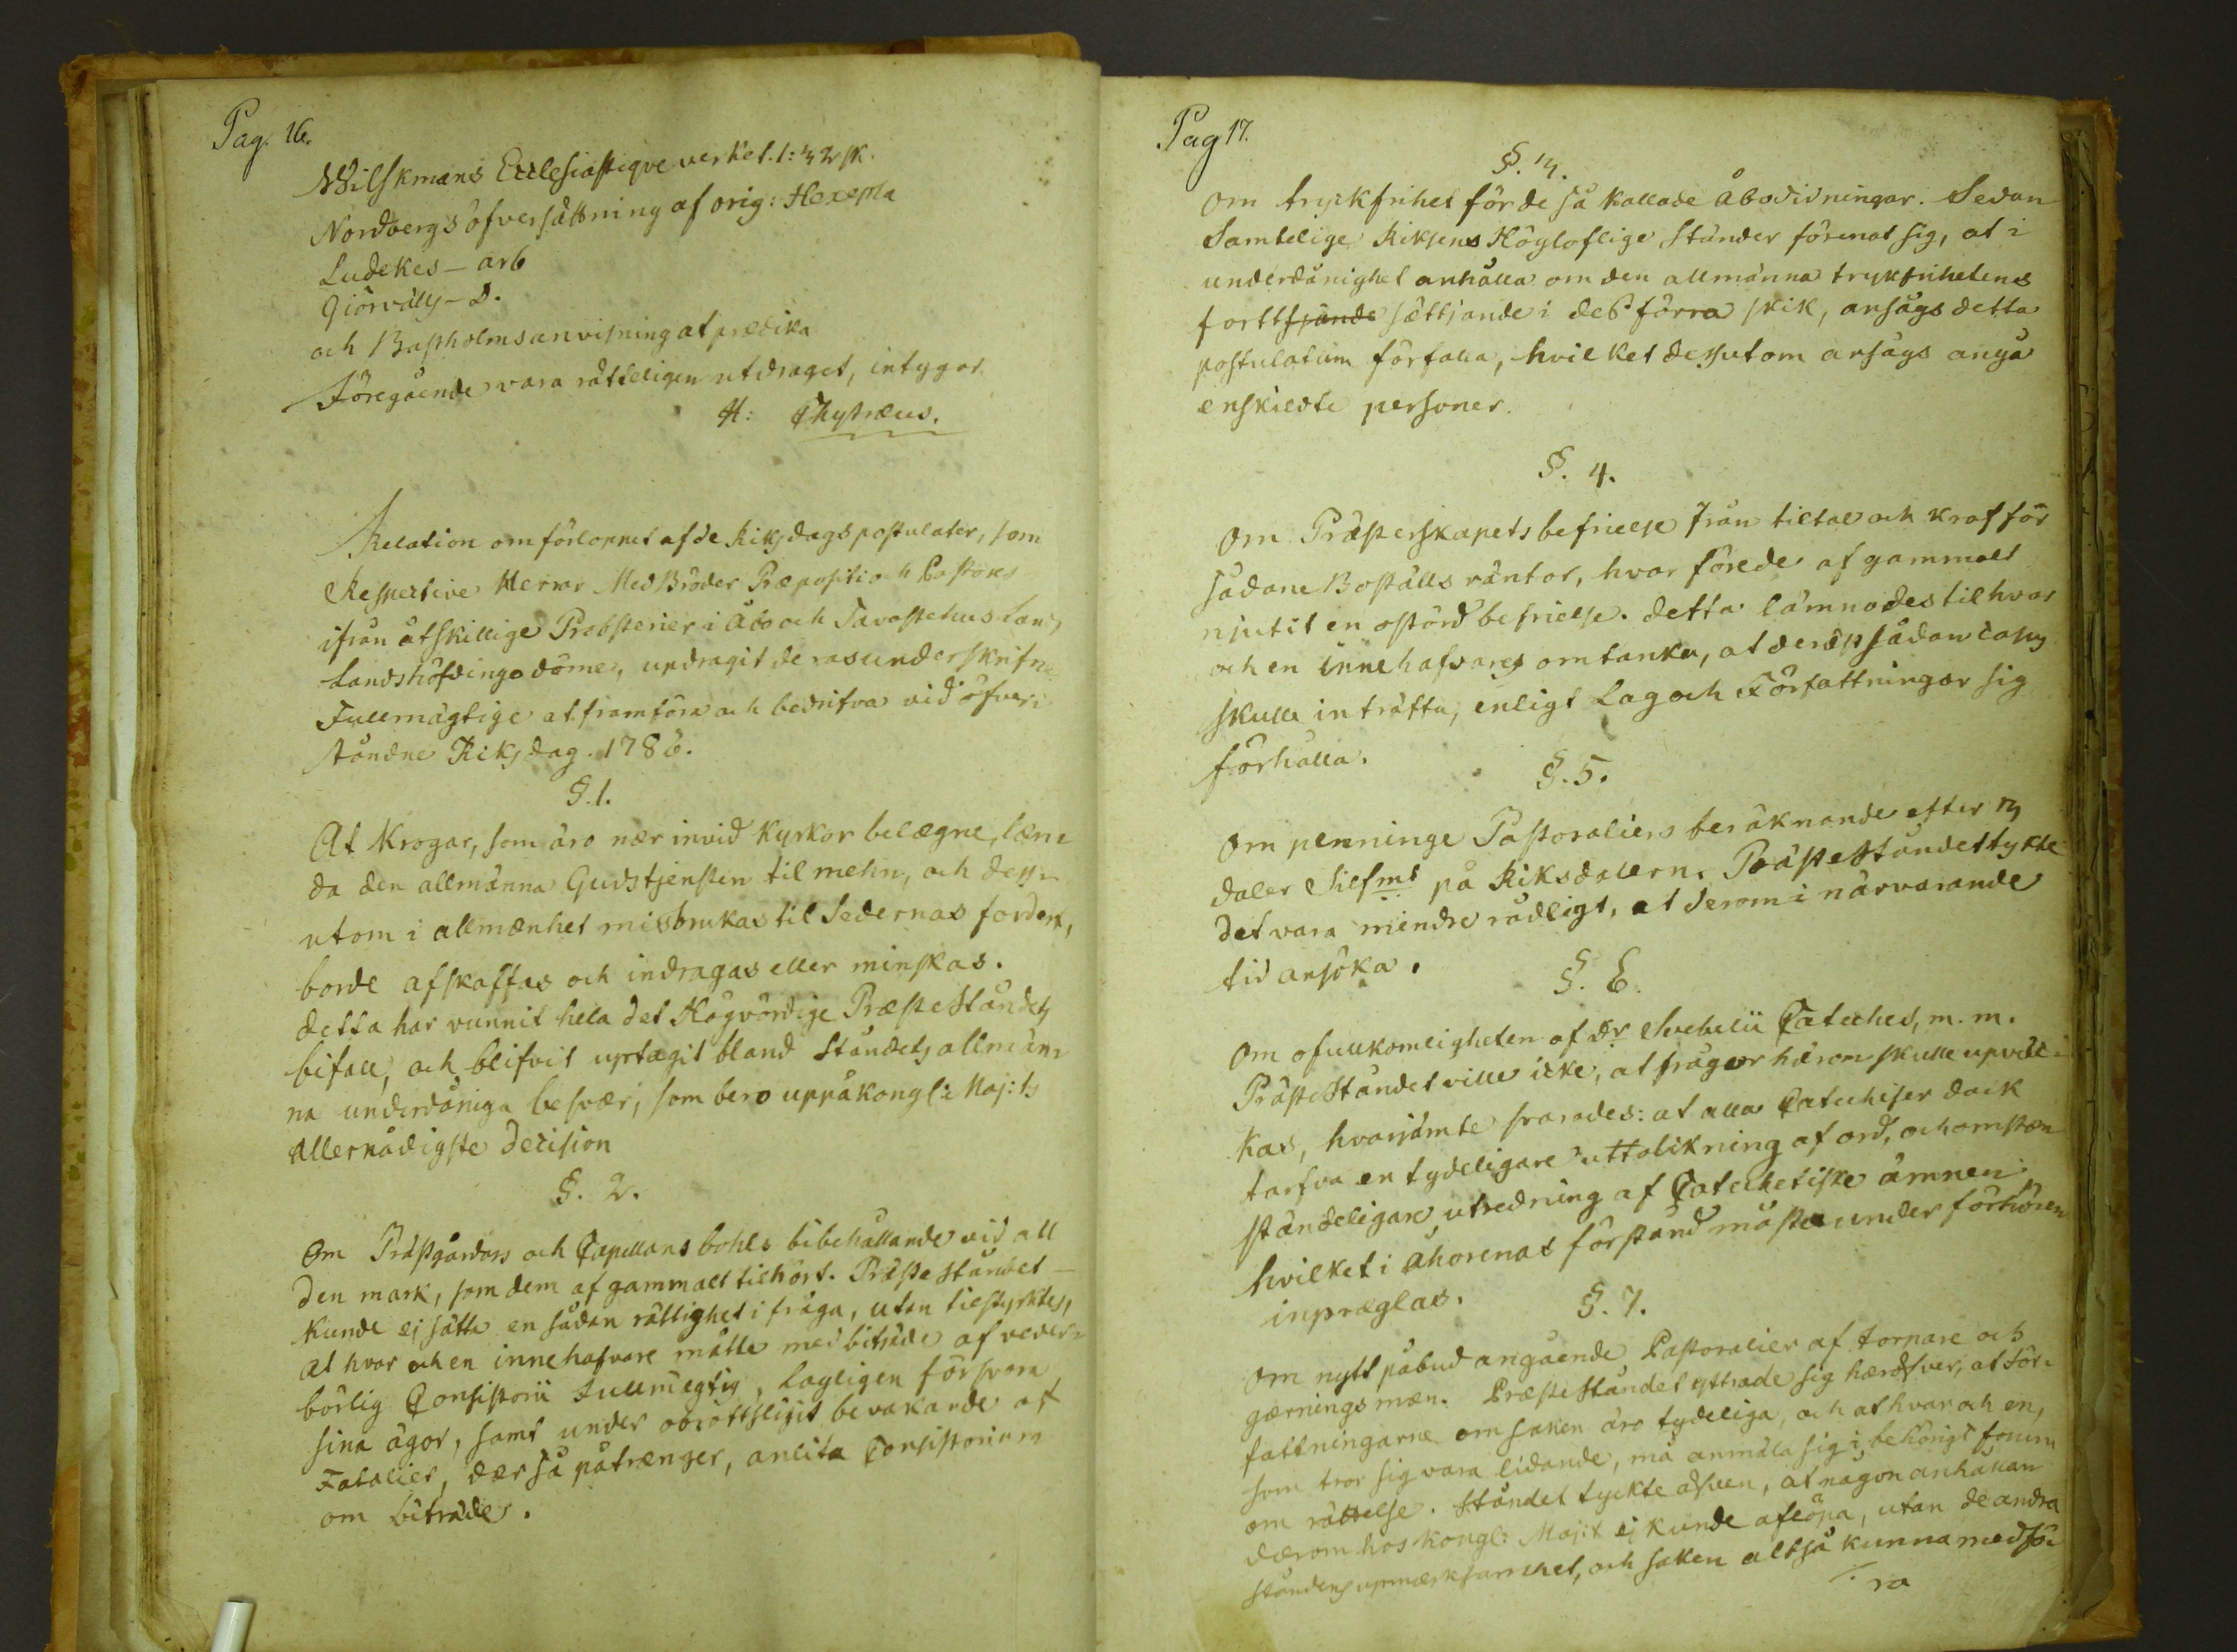 Pag. 16.
Wilskmans Ecclesiastique verket. 1: 32 sk.
Nordbergs öfversättning af orig: Hexepla
Ludekes – arb
Giörwälls – D.
och Baſtholms anviſning at predika
Föregående vara rätteligen utdraget, intygar
H: Chytræus.
Relation om förloppet af de Riksdags postulater, som
Respective Herrar Med Bröder Præpositi och Pastores
ifrån åtskillige Probsterier i Åbo och Tavastehus Lands
Landshöfdinge döme, updragit deras underskrifne
Fullmägtige at framföra och bedrifva vid öfver-
ståndne Riksdag. 1786.
§. 1.
At Krogar, som äro nær invid Kyrkor belægne, læn-
da den allmänna Gudstjensten til mehn, och dess-
utom i allmænhet missbrukas til Sedernas forderf,
borde afskaffas och indragas eller minskas.
detta har vunnit hela det Högvördige Præste Ståndets
bifall, och blifvit uptagit bland Ståndets allmän-
na underdåniga besvær, som bero uppå kongl: Maj:ts
allernådigste Decision
§. 2.
Om Prästgårdars och Capellans bohls bibehållande vid all
den mark, som dem af gammalt tilhört. Präste Ståndet
kunde ej sätta en sådan rättighet i fråga, utan tilstyrktes,
at hvar och en innehafvare måtte med biträde af veder-
börlig Consistorii Fullmägtig, lagligen försvara
sina ägor, samt under obrottsligit bevakande af
Fatalier, dær så påtrænger, anlita Consistorium
om biträde.
Pag 17.
§. 3.
Om tryckfrihet för de så kallade Åbo tidningar. Sedan
Samtelige Riksens Högloflige Ständer förenat sig, at i
underdånighet anhålla om den allmänna trykfrihetens
forttsjande sättjande i deß förra skik, ansågs detta
postulatum förfalla, hvilket dessutom ansågs angå
enskildte personer.
§. 4.
Om Præsterskapets befrielse från tiltal och kraf för
sådane Boställs räntor, hvar före de af gammalt
njutit en ostörd befrielse. detta lämnades til hvar
och en innehafvares omtanka, at deræst sådan casus
skulle inträffa, enligt Lag och Författningar sig
förhålla.
§. 5.
Om penninge Pastoraliers beräknande efter 3
daler Silfmt på Riksdalern. Präste Ståndet tykte
det vara mindre rådligt, at derom i närvarande
tid ansöka.
§. 6.
Om ofullkomligheten af Dr Svebelii Cateches, m. m.
Präste Ståndet ville icke, at frågor härom skulle upväc-
kas, hvarjämte svarades: at alla Catechiser dock
tarfva en tydeligare uttolkning af ord, och omstæn-
ständeligare utredning af Catechetiske ämnen
hvilket i åhörenas förstånd måste under förhören
inpræglas.
§. 7.
Om nytt påbud angående Pastoralier af torpare och
gærnings mæn. Præste Ståndet yttrade sig hæröfver, at för-
fattningarne om saken äro tydeliga, och at hvar och en,
som tror sig vara lidande, må anmäla sig i behörigt forum
om rättelse. Ståndet tyckte äfven, at någon anhållan
dærom hos Kongl: Maj:t ej kunde aflöpa, utan de andra
Ståndens upmærksamhet, och saken altså kunna medfö-
ra